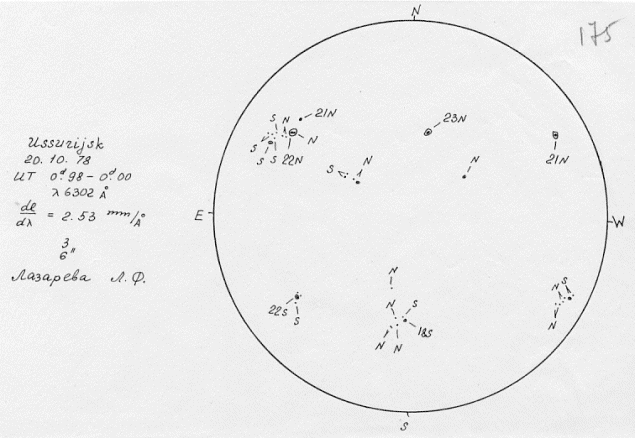 N
175
Ussurijsk
20. 10. 78
UT 0.ᵈ98 – 0.ᵈ00
λ 6302 Å
dl/dλ = 2.53 mm/Å
3
6"
Лазарева Л.Ф.
E
W
S
S N 21N
S N
S S 22N
23N
21N
S N
N
22S
S
N
N S
18S
N N
N S
N